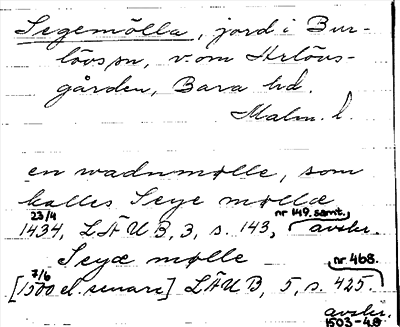 Segemölla, jord i Bur-
lövs sn, v. om Arlövs-
gården, Bara hd.
Malm. l.
en wadumølle, som
kalles Seye møllæ
23/4 nr 149. samt.
1434, LÄUB, 3, s. 143, avskr.
Seyæ mølle
7/6 nr 468.
[1500 el. senare] LÄUB, 5, s. 425.
avskr.
1503-48